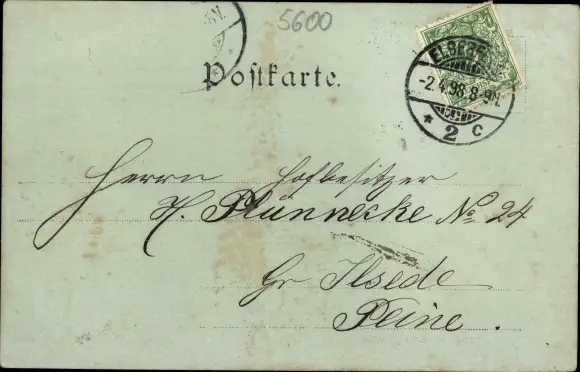 5600
Postkarte.
ELBERF
-2.4.98.8-9N.
* 2 c
Herrn Hofbesitzer
H. Plünnecke No 24
Gr Ilsede
Peine.